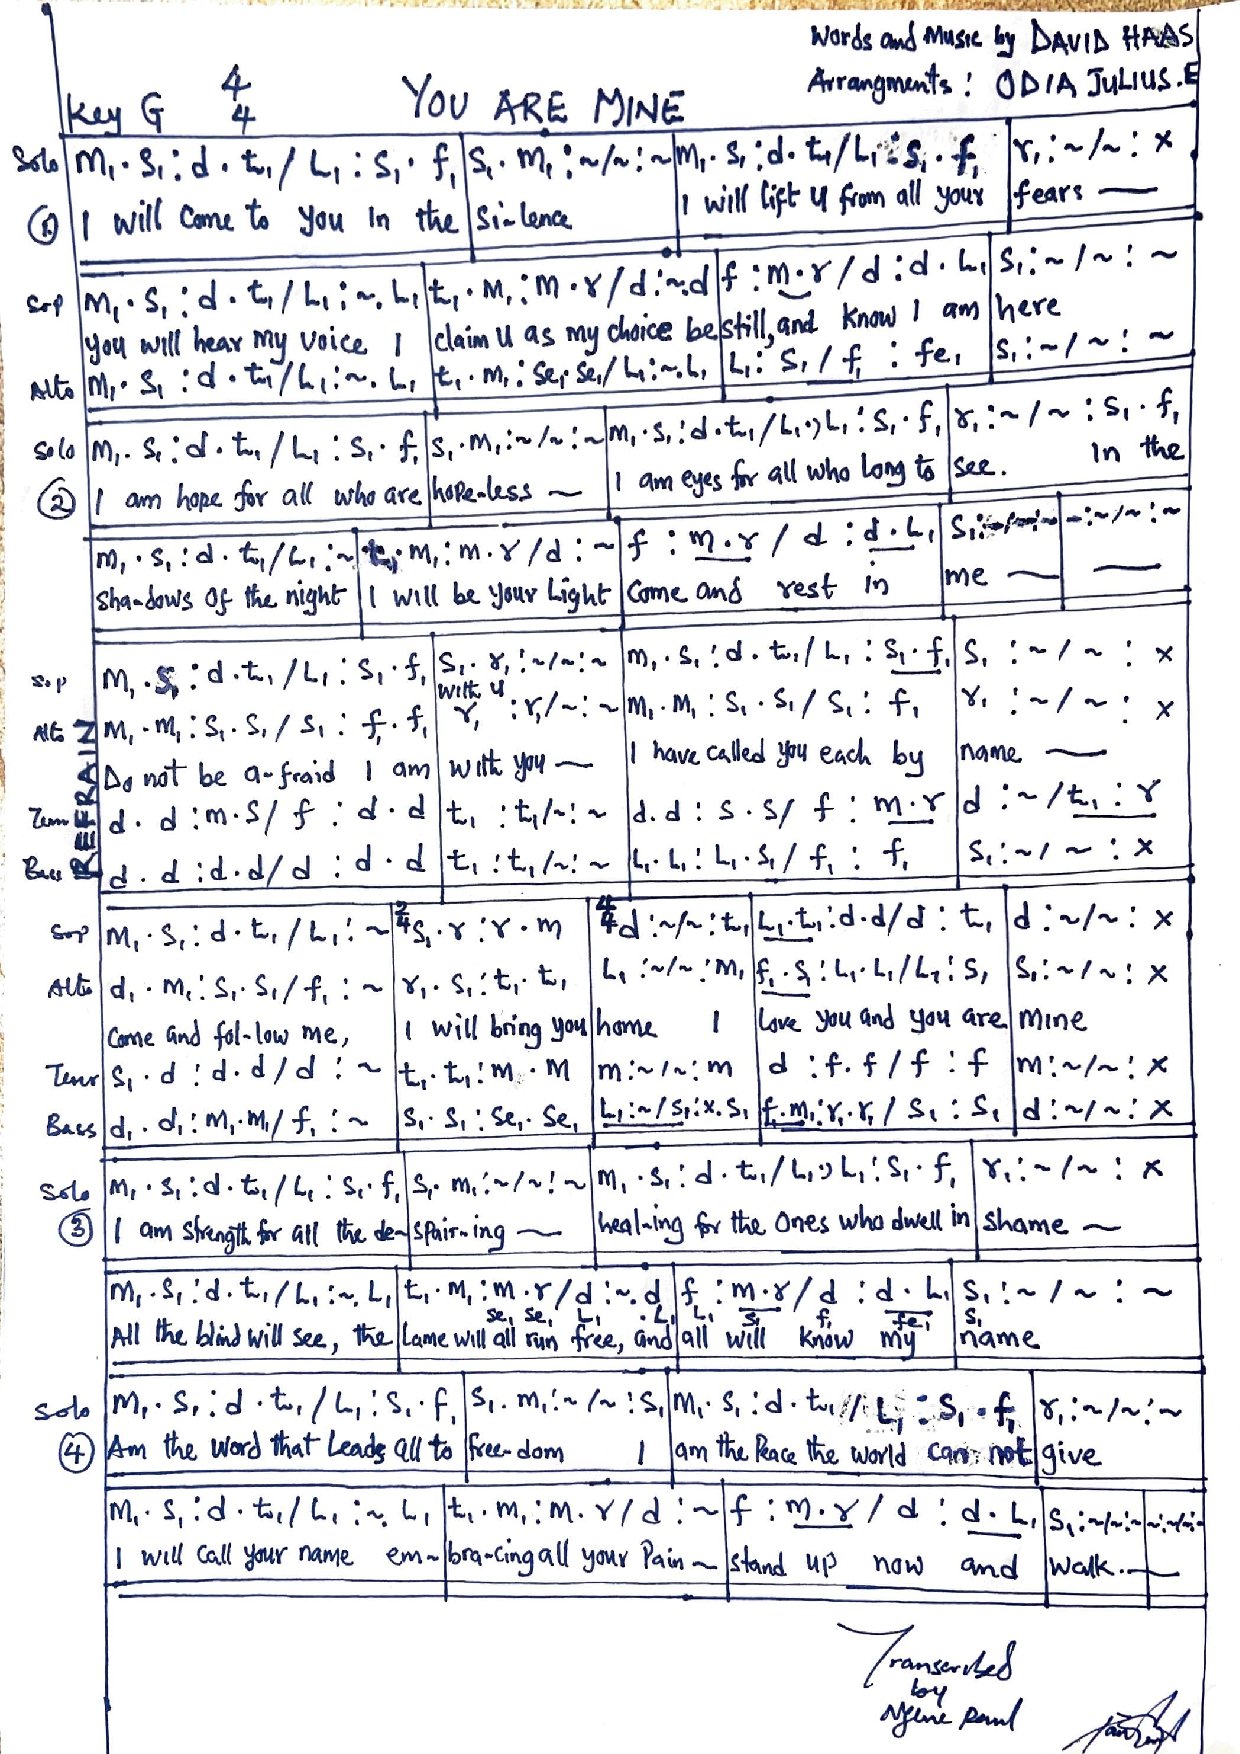 Words and Music by DAVID HAAS
Key G 4/4 YOU ARE MINE Arrangments : ODIA JULIUS.E
Solo m₁ . s₁ : d . t₁ / L₁ : s₁ . f₁ | s₁ . m₁ : ~ / ~ : ~ | m₁ . s₁ : d . t₁ / L₁ : s₁ . f₁ | r₁ : ~ / ~ : x
① I will Come to You In the | Si-lence | I will lift U from all your | fears —
Sop m₁ . s₁ : d . t₁ / L₁ : ~ . L₁ | t₁ . m₁ : m . r / d : ~ . d | f : m . r / d : d . L₁ | s₁ : ~ / ~ : ~
you will hear my voice I | claim U as my choice be | still, and know I am | here
Alto m₁ . s₁ : d . t₁ / L₁ : ~ . L₁ | t₁ . m₁ : se₁ . se₁ / L₁ : ~ . L₁ | L₁ : s₁ / f₁ : fe₁ | s₁ : ~ / ~ : ~
Solo m₁ . s₁ : d . t₁ / L₁ : s₁ . f₁ | s₁ . m₁ : ~ / ~ : ~ | m₁ . s₁ : d . t₁ / L₁ . , L₁ : s₁ . f₁ | r₁ : ~ / ~ : s₁ . f₁
② I am hope for all who are | hope-less ~ | I am eyes for all who Long to | see. In the
m₁ . s₁ : d . t₁ / L₁ : ~ | t₁ . m₁ : m . r / d : ~ | f : m . r / d : d . L₁ | s₁ : ~ / ~ : ~ | - : ~ / ~ : ~
Sha-dows Of the night | I will be your Light | Come and rest in | me — | —
REFRAIN
Sop m₁ . s₁ : d . t₁ / L₁ : s₁ . f₁ | s₁ . r₁ : ~ / ~ : ~ | m₁ . s₁ : d . t₁ / L₁ : s₁ . f₁ | s₁ : ~ / ~ : x
with U
Alto m₁ . m₁ : s₁ . s₁ / s₁ : f₁ . f₁ | r₁ : r₁ / ~ : ~ | m₁ . m₁ : s₁ . s₁ / s₁ : f₁ | r₁ : ~ / ~ : x
Do not be a-fraid I am | with you — | I have called you each by | name —
Tenn d . d : m . s / f : d . d | t₁ : t₁ / ~ : ~ | d . d : s . s / f : m . r | d : ~ / t₁ : r
Bass d . d : d . d / d : d . d | t₁ : t₁ / ~ : ~ | L₁ . L₁ : L₁ . s₁ / f₁ : f₁ | s₁ : ~ / ~ : x
Sop m₁ . s₁ : d . t₁ / L₁ : ~ | 2/4 s₁ . r : r . m | 4/4 d : ~ / ~ : t₁ | L₁ . t₁ : d . d / d : t₁ | d : ~ / ~ : x
Alto d₁ . m₁ : s₁ . s₁ / f₁ : ~ | r₁ . s₁ : t₁ . t₁ | L₁ : ~ / ~ : m₁ | f₁ . s₁ : L₁ . L₁ / L₁ : s₁ | s₁ : ~ / ~ : x
Come and fol-low me, | I will bring you | home I | love you and you are | mine
Tenr s₁ . d : d . d / d : ~ | t₁ . t₁ : m . m | m : ~ / ~ : m | d : f . f / f : f | m : ~ / ~ : x
Bass d₁ . d₁ : m₁ . m₁ / f₁ : ~ | s₁ . s₁ : se₁ . se₁ | L₁ : ~ / s₁ : x . s₁ | f₁ . m₁ : r₁ . r₁ / s₁ : s₁ | d : ~ / ~ : x
Solo m₁ . s₁ : d . t₁ / L₁ : s₁ . f₁ | s₁ . m₁ : ~ / ~ : ~ | m₁ . s₁ : d . t₁ / L₁ . , L₁ : s₁ . f₁ | r₁ : ~ / ~ : x
③ I am Strength for all the de- | spair-ing — | heal-ing for the Ones who dwell in | shame ~
m₁ . s₁ : d . t₁ / L₁ : ~ . L₁ | t₁ . m₁ : m . r / d : ~ . d | f : m . r / d : d . L₁ | s₁ : ~ / ~ : ~
se₁ se₁ L₁ . L₁ | L₁ s₁ f₁ fe₁ | s₁
All the blind will see, the | Lame will all run free, and | all will know my | name
Solo m₁ . s₁ : d . t₁ / L₁ : s₁ . f₁ | s₁ . m₁ : ~ / ~ : s₁ | m₁ . s₁ : d . t₁ // L₁ : s₁ . f₁ | r₁ : ~ / ~ : ~
④ Am the Word that Leads all to | free-dom I | am the Peace the world can not | give
m₁ . s₁ : d . t₁ / L₁ : ~ . L₁ | t₁ . m₁ : m . r / d : ~ | f : m . r / d : d . L₁ | s₁ : ~ / ~ : ~ | ~ : ~ / ~ : ~
I will call your name em- | bra-cing all your Pain ~ | stand up now and | walk. —
Transcribed
by
Paul